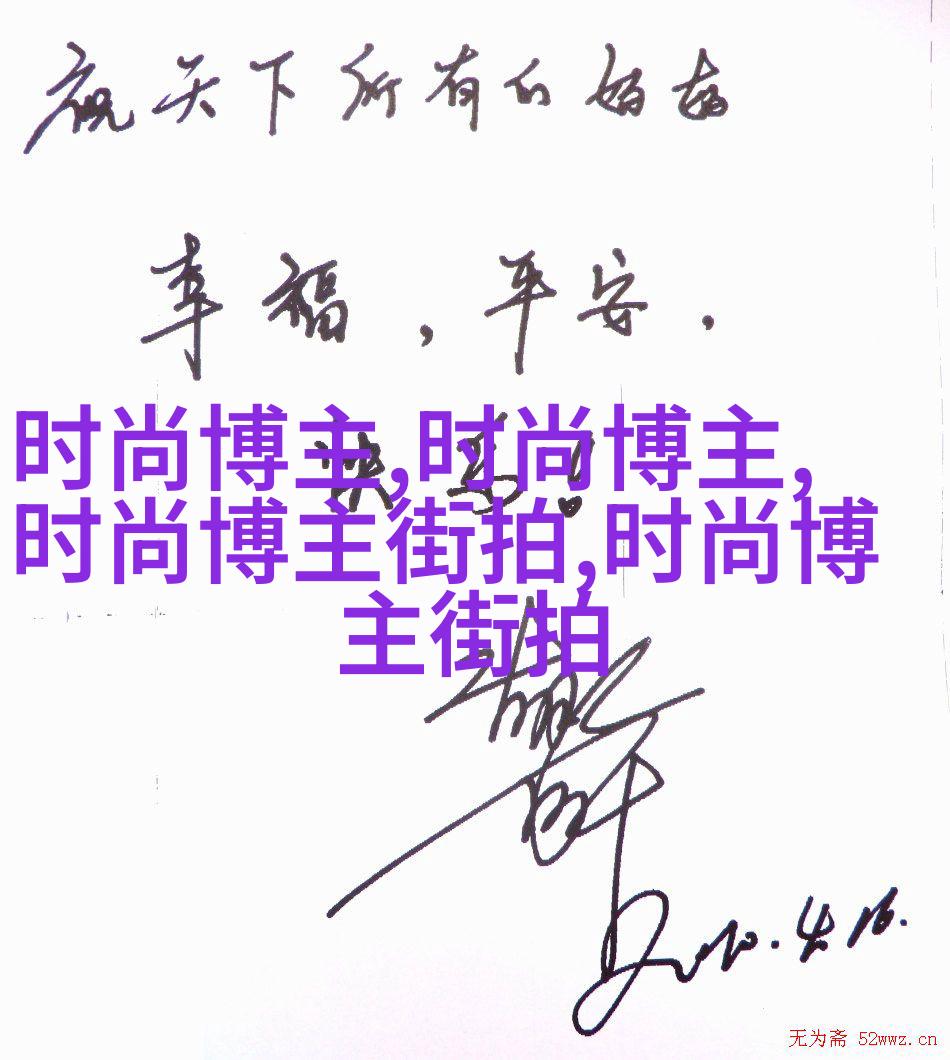 祝天下所有的妈妈
幸福，平安，
快乐！
时尚博主,时尚博主,
时尚博主街拍,时尚博
主街拍
2010.4.16.
无为斋 52wwz.cn